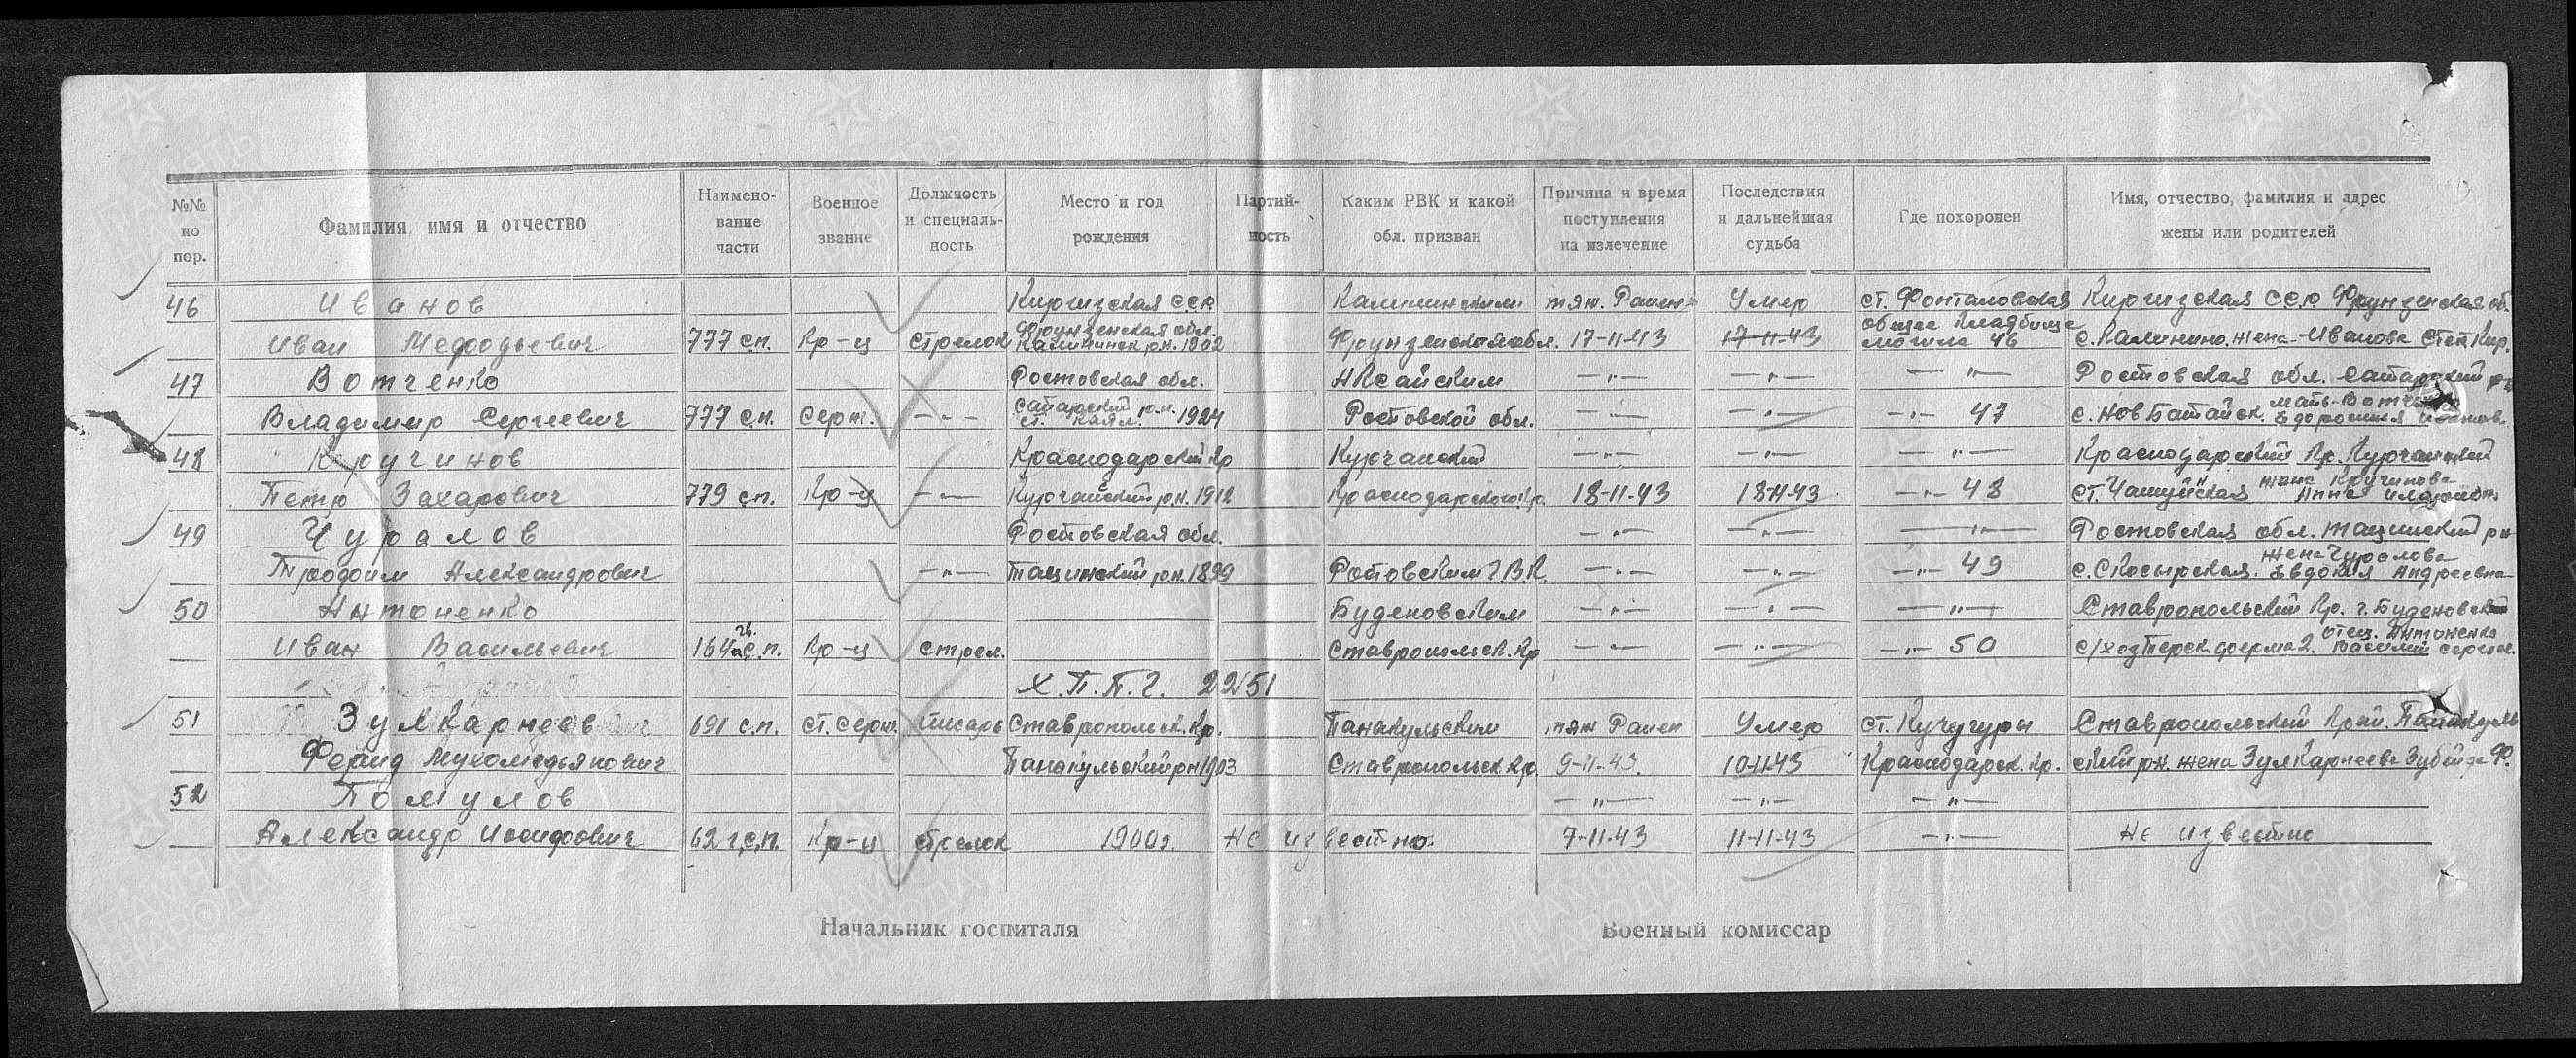 №№ по пор. Фамилия имя и отчество Наименование части Военное звание Должность и специальность Место и год рождения Партийность Каким РВК и какой обл. призван Причина и время поступления на излечение Последствия и дальнейшая судьба Где похоронен Имя, отчество, фамилия и адрес жены или родителей
46 Иванов Киргизская ССР. Калининским тяж. Ранен. Умер ст. Фонталовская Киргизская ССР Фрунзенская об.
Фрунзенская обл. общее кладбище
Иван Мефодьевич 777 с.п. Кр-ц стрелок Калининск р.н. 1902 Фрунзенской обл. 17-11-43 17-11-43 могила 46 с. Калинино. жена-Иванова
47 Вотченко Ростовская обл. Аксайским —"— —"— —"— Ростовская обл.
Владимир Сергеевич 777 с.п. Серж. —"— р.н. 1924 Ростовской обл. —"— —"— —"— 47 с. Нов Батайск. мать-Вотченко
48 Кручинов Краснодарский Кр Курчанский —"— —"— —"— Краснодарский Кр. Курчанский
Петр Захарович 779 с.п. Кр-ц —"— Курчанский р.н. 1912 Краснодарского Кр. 18-11-43 18-11-43 —"— 48 ст. жена Кручинова Анна
49 Чуралов Ростовская обл. —"— —"— —"— Ростовская обл. Тацинский рн
Трофим Александрович —"— Тацинский р.н. 1899 Ростовским Г.В.К. —"— —"— —"— 49 с. Скосырская. жена Чуралова Евдокия Андреевна
50 Антоненко Буденовским —"— —"— —"— Ставропольский Кр. г. Буденовск
Иван Васильевич 164 с.п. Кр-ц стрел. Ставропольск. Кр —"— —"— —"— 50 с/хоз Терск ферма 2. отец. Антоненко Василий
Х.П.П.Г. 2251
51 Зулкарнеев 691 с.п. ст. серж. писарь Ставропольск. Кр. Панакульским тяж Ранен Умер ст. Кучугуры Ставропольский Край. Панакуль
Фарид Мухомедьянович Панакульский рн 1903 Ставропольск Кр 9-11-43. 10-11-43 Краснодарск. Кр. ский рн. жена Зулкарнеева Зубейда Ф.
52 Помулов —"— —"— —"—
Александр Иосифович 62 с.п. Кр-ц стрелок 1900г. Не известно. 7-11-43 11-11-43 —"— Не известно
Начальник госпиталя Военный комиссар
ПАМЯТЬ НАРОДА